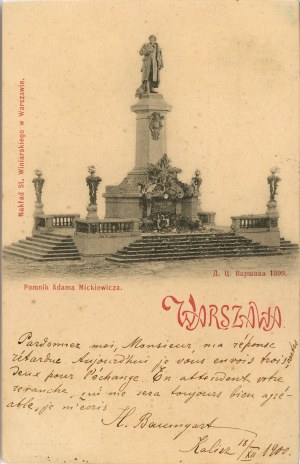 Nakład St. Winiarskiego w Warszawie.
Pomnik Adama Mickiewicza.
Д. Ц. Варшава 1899.
WARSZAWA.
Pardonnez moi, Monsieur, ma réponse
retardue. Aujourd'hui je vous envois trois
deux pour l'échange. En attendent votre
revanche, qui me sera toujours bien agré-
able, je
H. Baumgart
Kalisz 18/XII 1900.